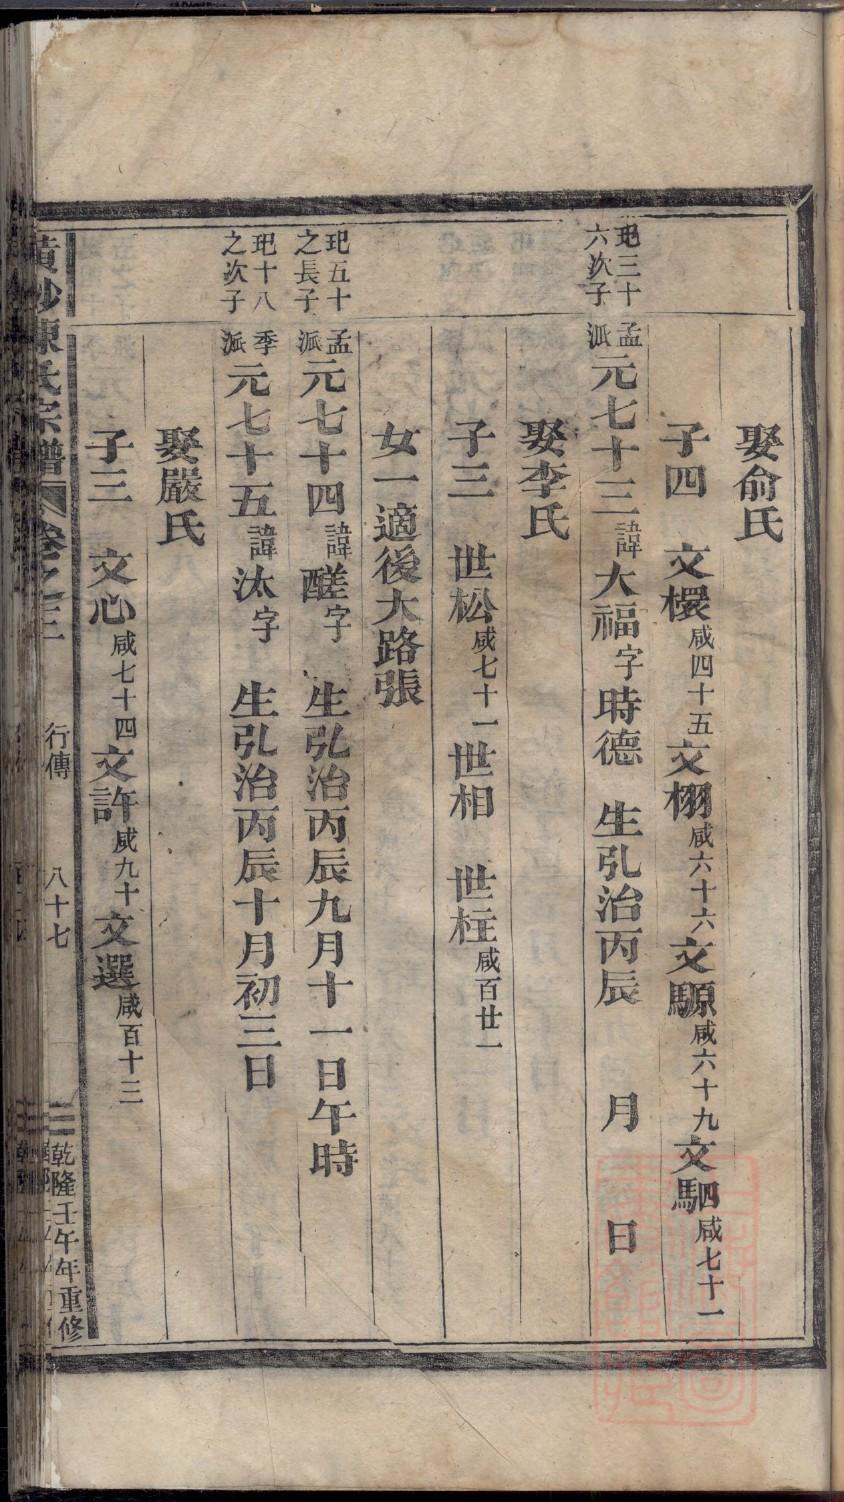 娶俞氏
子四 文檈咸四十五文栩咸六十六文騵咸六十九文駟咸七十一
玘三十六次子 孟派元七十三諱大福字時德 生弘治丙辰 月 日
娶李氏
子三 世松咸七十一世相 世柱咸百廿一
女一適後大路張
玘五十之長子 孟派元七十四諱醝字 生弘治丙辰九月十一日午時
玘十八之次子 季派元七十五諱汰字 生弘治丙辰十月初三日
娶嚴氏
子三 文心咸七十四文許咸九十文選咸百十三
黄沙陳氏宗譜 卷之三 行傳 八十七 乾隆壬午年重修